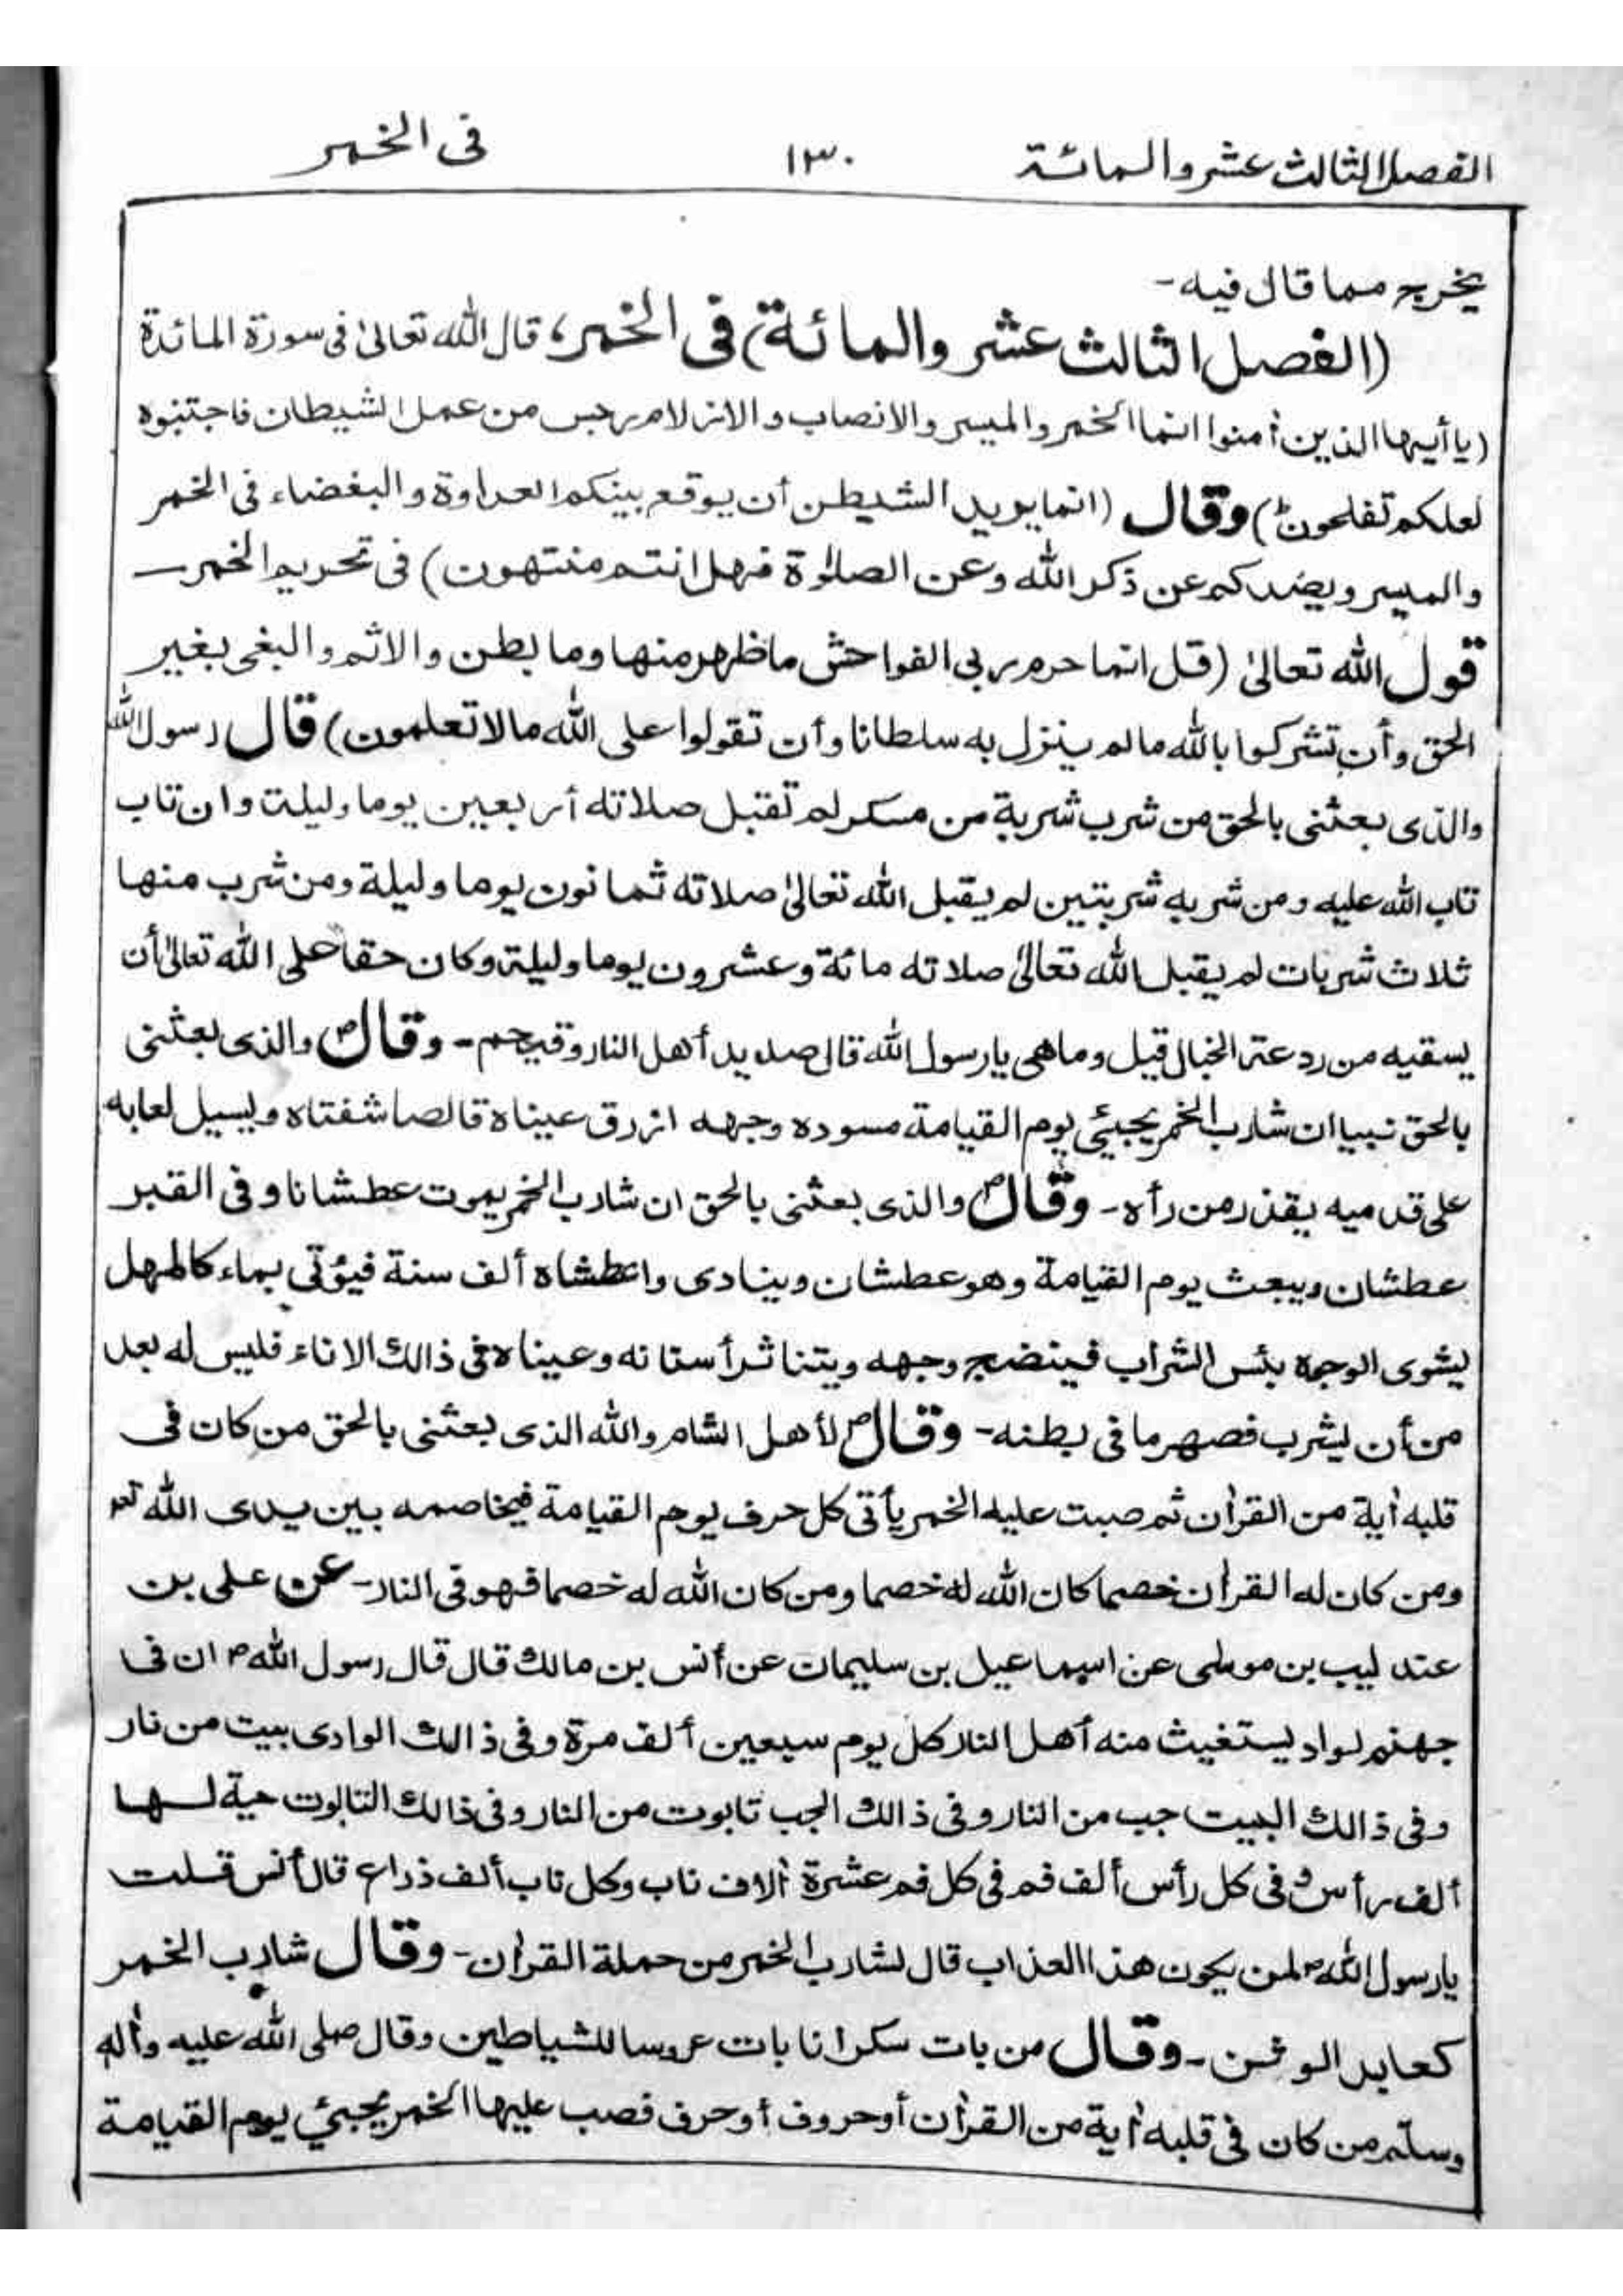 الفصل الثالث عشر والمائة ١٣٠ فى الخمر
يخرج مما قال فيه -
(الفصل الثالث عشر والمائة) فى الخمر، قال الله تعالىٰ فى سورة المائدة
(يا أيها الذين أٰمنوا انما الخمر والميسر والانصاب والازلام رجس من عمل الشيطان فاجتنبوه
لعلكم تفلحون) وقال (انما يريد الشيطٰن أن يوقع بينكم العداوة والبغضاء فى الخمر
والميسر ويضدكم عن ذكر الله وعن الصلوٰة فهل انتم منتهون) فى تحريم الخمر —
قول الله تعالىٰ (قل انما حرم ربى الفواحش ما ظهر منها وما بطن والاثم والبغى بغير
الحق وأن تشركوا بالله ما لم ينزل به سلطانا وأن تقولوا على الله ما لا تعلمون) قال رسول الله
والذى بعثنى بالحق من شرب شربة من مسكر لم تقبل صلاته أربعين يوما وليلة وان تاب
تاب الله عليه ومن شربه شربتين لم يقبل الله تعالىٰ صلاته ثمانون يوما وليلة ومن شرب منها
ثلاث شربات لم يقبل الله تعالىٰ صلاته مائة وعشرون يوما وليلة وكان حقا على الله تعالىٰ أن
يسقيه من ردعة الخبال قيل وما هى يا رسول الله قال صديد أهل النار وقيحهم - وقالؐ والذى بعثنى
بالحق نبيا ان شارب الخمر يجيئ يوم القيامة مسوده وجهه ازرق عيناه قالصا شفتاه ويسيل لعابه
على قدميه يقذر من رأه - وقالؐ والذى بعثنى بالحق ان شارب الخمر يموت عطشانا وفى القبر
عطشان ويبعث يوم القيامة وهو عطشان وينادى واعطشاه ألف سنة فيؤتى بماء كالمهل
يشوى الوجوه بئس الشراب فينضج وجهه ويتناثر أسنانه وعيناه فى ذالك الاناء فليس له بعد
من أن يشرب فصهر ما فى بطنه - وقالؐ لأهل الشام والله الذى بعثنى بالحق من كان فى
قلبه أٰية من القرأٰن ثم صبت عليه الخمر يأتى كل حرف يوم القيامة فيخاصمه بين يدى الله تعم
ومن كان له القرأٰن خصما كان الله له خصما ومن كان الله له خصما فهو فى النار - عن على بن
عندليب بن موسٰى عن اسماعيل بن سليمان عن أنس بن مالك قال قال رسول اللهؐ ان فى
جهنم لواد يستغيث منه أهل النار كل يوم سبعين ألف مرة وفى ذالك الوادى بيت من نار
وفى ذالك البيت جب من النار وفى ذالك الجب تابوت من النار وفى ذالك التابوت حية لها
ألف رأس وفى كل رأس ألف فم فى كل فم عشرة أٰلاف ناب وكل ناب ألف ذراع قال أنس قلت
يا رسول اللهؐ لمن يكون هذا العذاب قال لشارب الخمر من حملة القرأٰن - وقال شارب الخمر
كعابد الوثن - وقال من بات سكرانا بات عروسا للشياطين وقال صلى الله عليه وأٰله
وسلم من كان فى قلبه أٰية من القرأٰن أو حروف أو حرف فصب عليها الخمر يجيئ يوم القيامة